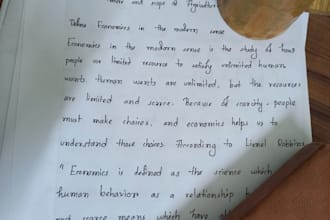 and scope of Agriculture
Define Economics in the modern sense
Economics in the modern sense is the study of how
people use limited resource to satisfy unlimited human
wants. Human wants are unlimited, but the resources
are limited and scarce. Because of scarcity, people
must make choices, and economics helps us to
understand those choices. According to Lionel Robbins
" Economics is defined as the science which
human behavior as a relationship b
and scarce means which have al